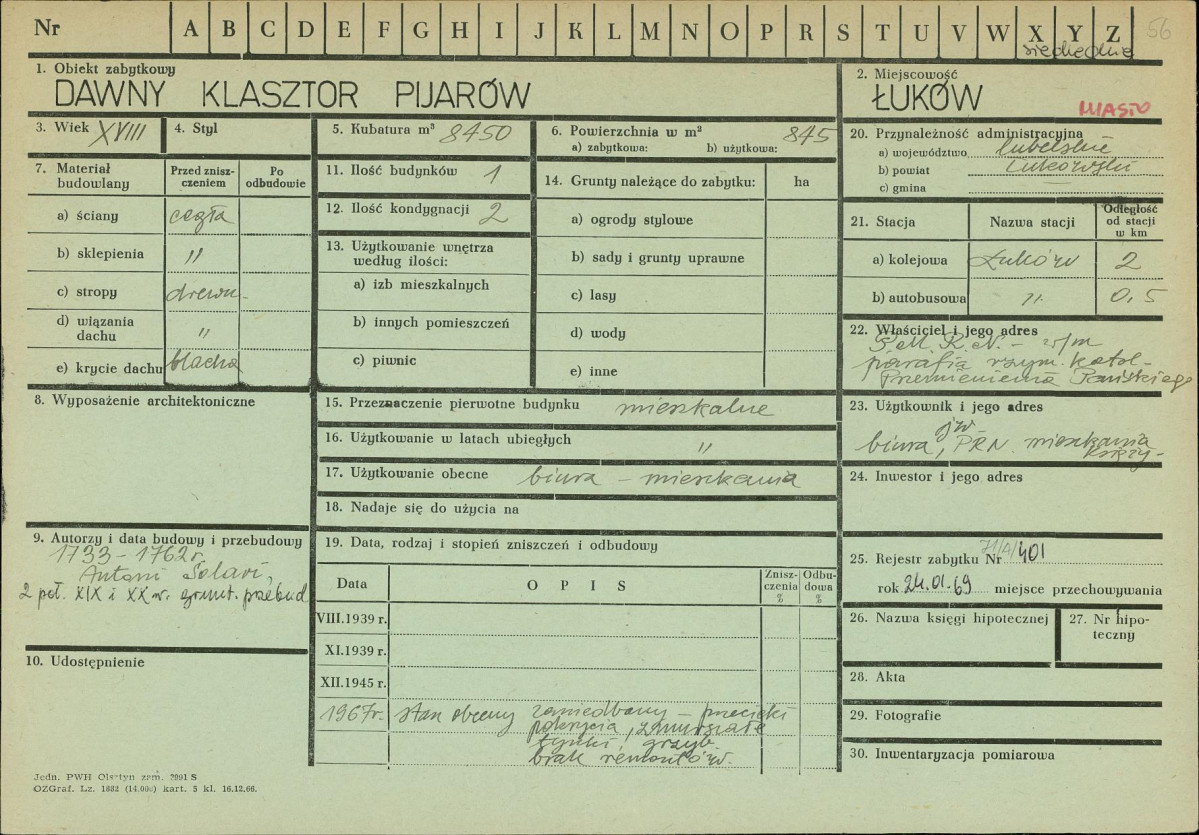 Nr A B C D E F G H I J K L M N O P R S T U V W X Y Z 56
siedleckie
1. Obiekt zabytkowy
DAWNY KLASZTOR PIJARÓW
2. Miejscowość
ŁUKÓW MIASTO
3. Wiek XVIII
4. Styl
5. Kubatura m³ 8450
6. Powierzchnia w m² 845
a) zabytkowa: b) użytkowa:
7. Materiał budowlany
Przed znisz-
czeniem
Po
odbudowie
a) ściany cegła
b) sklepienia "
c) stropy drewn.
d) wiązania
dachu "
e) krycie dachu blacha
8. Wyposażenie architektoniczne
9. Autorzy i data budowy i przebudowy
1733 - 1762 r.
Antoni Solari,
2 poł. XIX i XX w. grunt. przebud
10. Udostępnienie
11. Ilość budynków 1
12. Ilość kondygnacji 2
13. Użytkowanie wnętrza
według ilości:
a) izb mieszkalnych
b) innych pomieszczeń
c) piwnic
14. Grunty należące do zabytku: ha
a) ogrody stylowe
b) sady i grunty uprawne
c) lasy
d) wody
e) inne
15. Przeznaczenie pierwotne budynku mieszkalne
16. Użytkowanie w latach ubiegłych "
17. Użytkowanie obecne biura - mieszkania
18. Nadaje się do użycia na
19. Data, rodzaj i stopień zniszczeń i odbudowy
Data OPIS Znisz-
czenia
% Odbu-
dowa
%
VIII.1939 r.
XI.1939 r.
XII.1945 r.
1967r. stan obecny zaniedbany - przecieki
pokrycia, zmurszałe
tynki, grzyb.
brak remontów.
20. Przynależność administracyjna
a) województwo lubelskie
b) powiat Łukowski
c) gmina —
21. Stacja Nazwa stacji Odległość
od stacji
w km
a) kolejowa Łuków 2
b) autobusowa " 0,5
22. Właściciel i jego adres
P.M.R.N. - w/m
parafia rzym. katol-
Przemienienia Pańskiego
23. Użytkownik i jego adres
jw
biura, PRN. mieszkania
księży-
24. Inwestor i jego adres
25. Rejestr zabytku Nr 71/A/401
rok 24.01.69 miejsce przechowywania
26. Nazwa księgi hipotecznej
27. Nr hipo-
teczny
28. Akta
29. Fotografie
30. Inwentaryzacja pomiarowa
Jedn. PWH Olsztyn zam. 7991 S
OZGraf. Lz. 1882 (14.000) kart. 5 kl. 16.12.66.